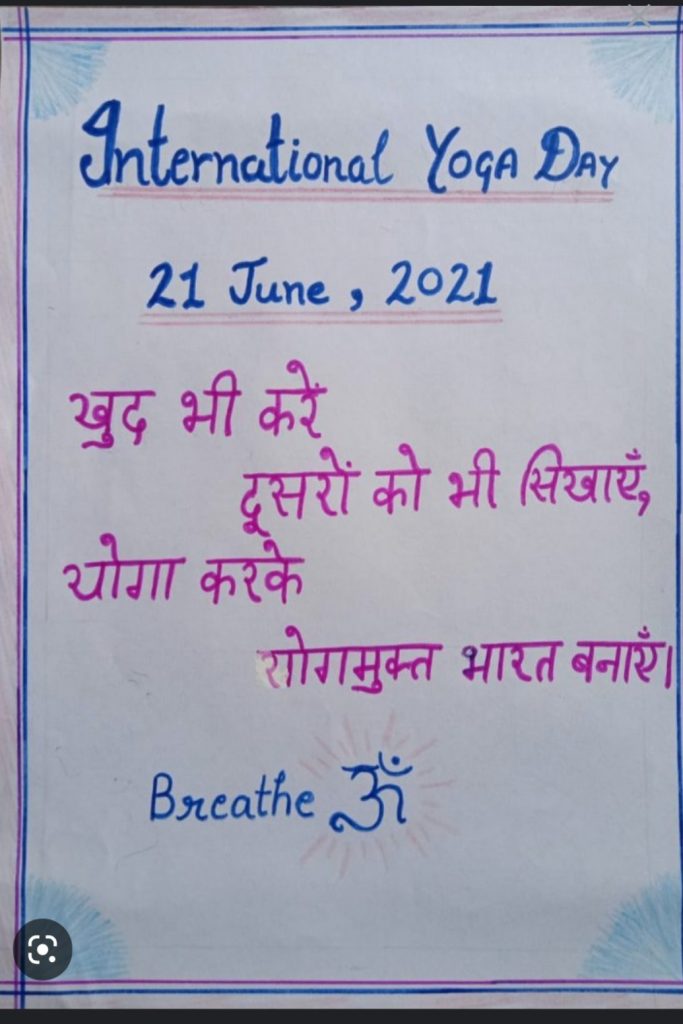 International Yoga Day
21 June, 2021
खुद भी करें
दूसरों को भी सिखाएँ,
योगा करके
रोगमुक्त भारत बनाएँ।
Breathe ॐ